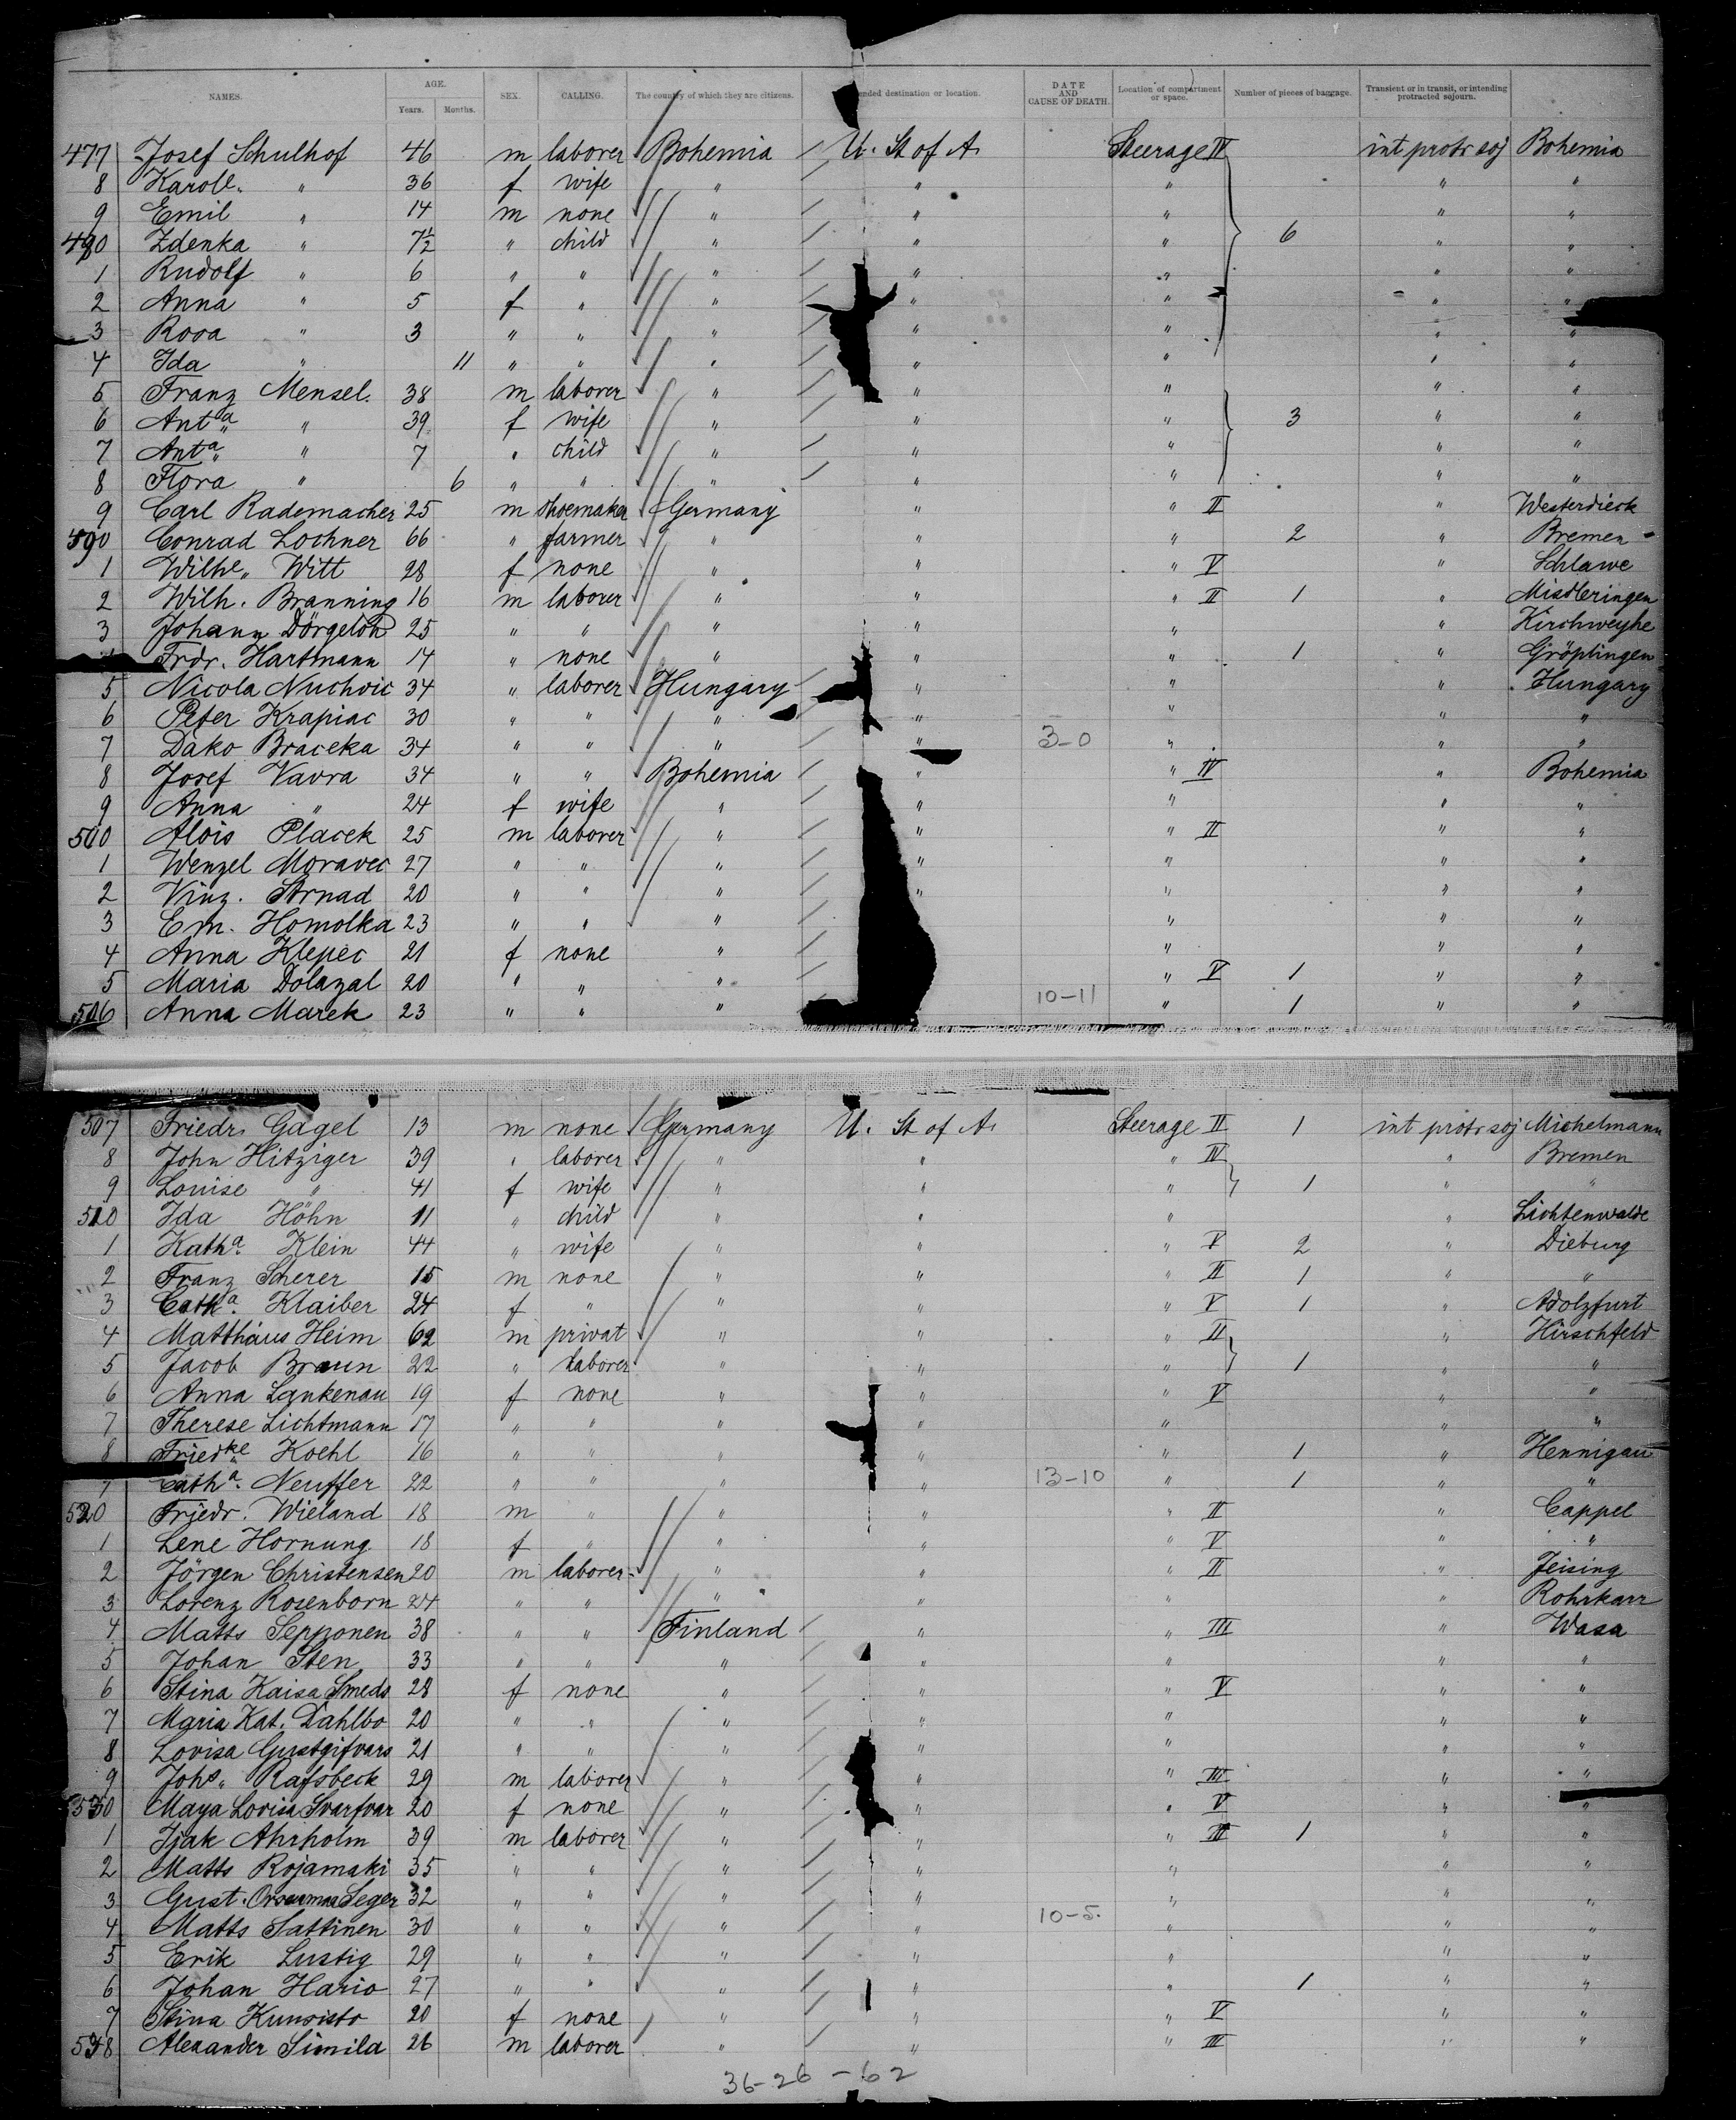 NAMES. AGE. Years. Months. SEX. CALLING. The country of which they are citizens. ended destination or location. DATE AND CAUSE OF DEATH. Location of compartment or space. Number of pieces of baggage. Transient or in transit, or intending protracted sojourn.
477 Josef Schulhof 46 m laborer Bohemia U. St of A. Steerage IV int protr soj Bohemia
8 Karole. " 36 f wife " " " " "
9 Emil " 14 m none " " " " "
480 Zdenka " 7½ " child " " " 6 " "
1 Rudolf " 6 " " " " " " "
2 Anna " 5 f " " " " " "
3 Rosa " 3 " " " " " " "
4 Ida " 11 " " " " " " "
5 Franz Mensel. 38 m laborer " " " " "
6 Anta " 39 f wife " " " 3 " "
7 Anta " 7 " child " " " " "
8 Flora " 6 " " " " " " "
9 Carl Rademacher 25 m shoemaker Germany " " II " Westerdieck
490 Conrad Lochner 66 " farmer " " " 2 " Bremen
1 Wilhe. Witt 28 f none " " " V " Schlawe
2 Wilh. Branning 16 m laborer " " " II 1 " Misdleringen
3 Johann Dörgeloh 25 " " " " " " Kirchweyhe
Frdr. Hartmann 14 " none " " " 1 " Gröplingen
5 Nicola Nuchvic 34 " laborer Hungary " " " Hungary
6 Peter Krapiac 30 " " " " " " "
7 Dako Braceka 34 " " " " 3-0 " " "
8 Josef Vavra 34 " " Bohemia " " IV " Bohemia
9 Anna " 24 f wife " " " " "
500 Alois Placek 25 m laborer " " II " "
1 Wenzel Moravec 27 " " " " " " "
2 Vinz. Strnad 20 " " " " " " "
3 Em. Homolka 23 " " " " " "
4 Anna Klepec 21 f none " " " "
5 Maria Dolazal 20 " " " " V 1 " "
506 Anna Marek 23 " " " 10-11 " 1 " "
507 Friedr. Gagel 13 m none Germany U. St of A. Steerage II 1 int protr soj Michelmann
8 John Hitziger 39 " laborer " " " IV " Bremen
9 Louise " 41 f wife " " " 1 " "
510 Ida Höhn 11 " child " " " " Lichtenwalde
1 Katha. Klein 44 " wife " " " V 2 " Dieburg
2 Franz Scherer 15 m none " " " II 1 " "
3 Catha. Klaiber 24 f " " " " V 1 " Adolzfurt
4 Matthäus Heim 62 m privat " " " II " Hirschfeld
5 Jacob Braun 22 " laborer " " " 1 " "
6 Anna Lankenau 19 f none " " " V " "
7 Therese Lichtmann 17 " " " " " " "
8 Friedke Koehl 16 " " " " " 1 " Hennigau
Catha. Neuffer 22 " " " " 13-10 " 1 " "
520 Friedr. Wieland 18 m " " " " II " Cappel
1 Lene Hornung 18 f " " " " V " "
2 Jörgen Christensen 20 m laborer " " " II " Jeising
3 Lorenz Rosenborn 24 " " " " " " Rohrkarr
4 Matts Sepponen 38 " " Finland " " III " Wasa
5 Johan Sten 33 " " " " " " "
6 Stina Kaisa Smeds 28 f none " " " V " "
7 Maria Kat. Dahlbo 20 " " " " " " "
8 Lovisa Gustgifvars 21 " " " " " " "
9 Johs. Rafsbeck 29 m laborer " " " III " "
530 Maya Lovisa Svarfvar 20 f none " " " V " "
1 Isak Ahrholm 39 m laborer " " " III 1 " "
2 Matts Rojamaki 35 " " " " " " "
3 Gust. Leger 32 " " " " " " "
4 Matts Sattinen 30 " " " " 10-5. " " "
5 Erik Lustig 29 " " " " " " "
6 Johan Hario 27 " " " " " 1 " "
7 Stina Kunsisto 20 f none " " " V " "
538 Alexander Simila 26 m laborer " " " III " "
36-26-62